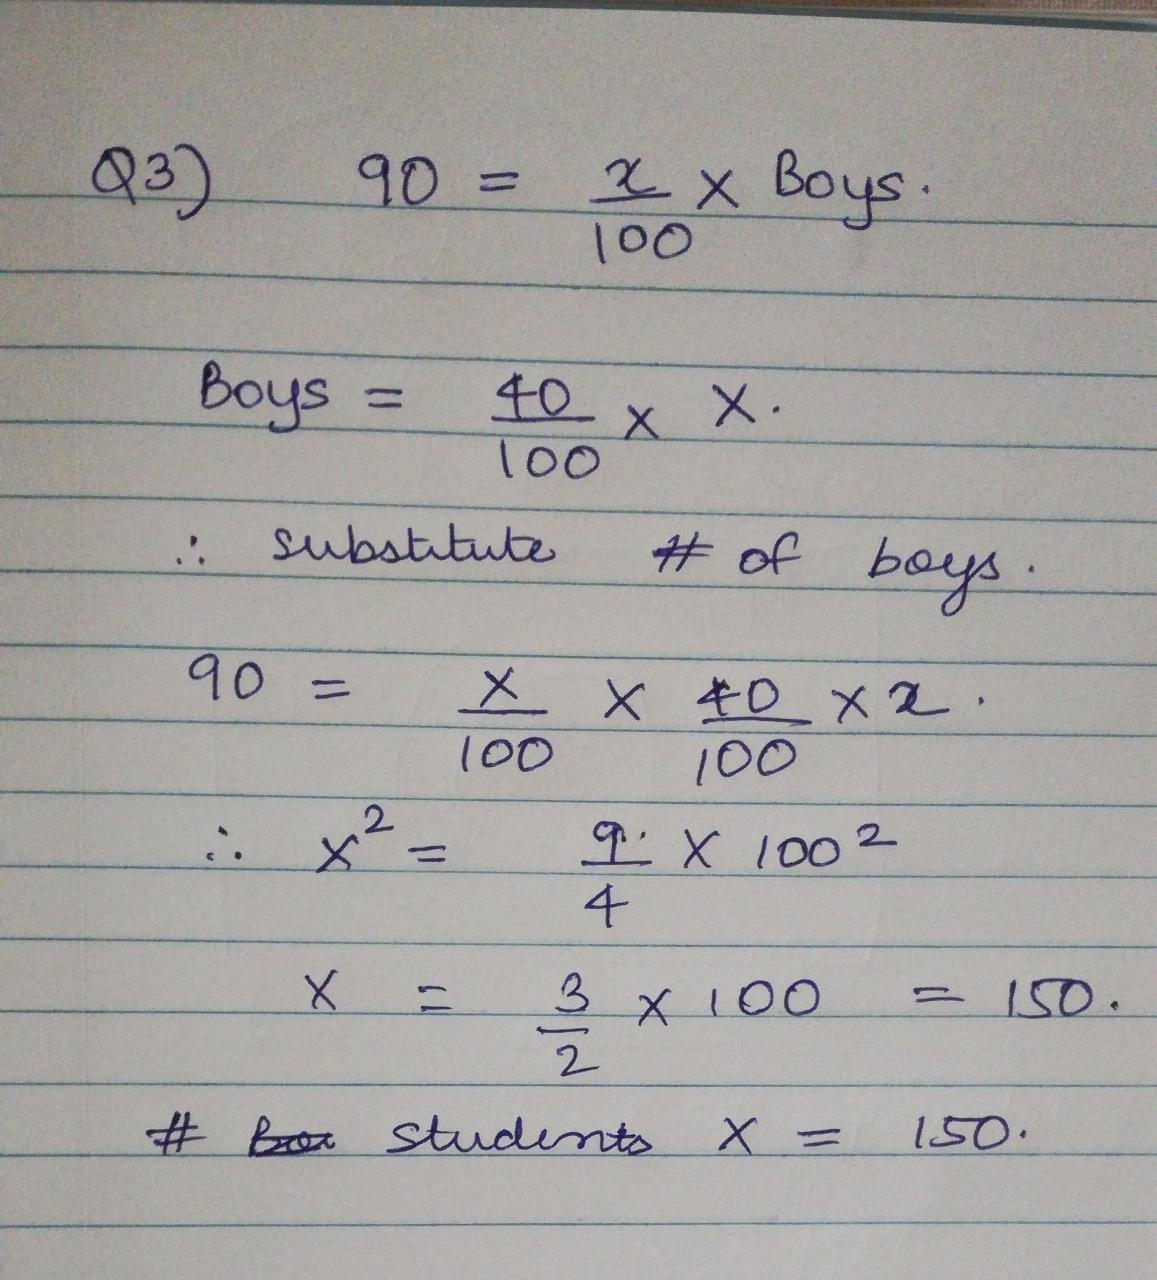 Q3) 90 = x/100 × Boys.
Boys = 40/100 × X.
∴ substitute # of boys.
90 = X/100 × 40/100 × x.
∴ X² = 9/4 × 100²
X = 3/2 × 100 = 150.
# students X = 150.